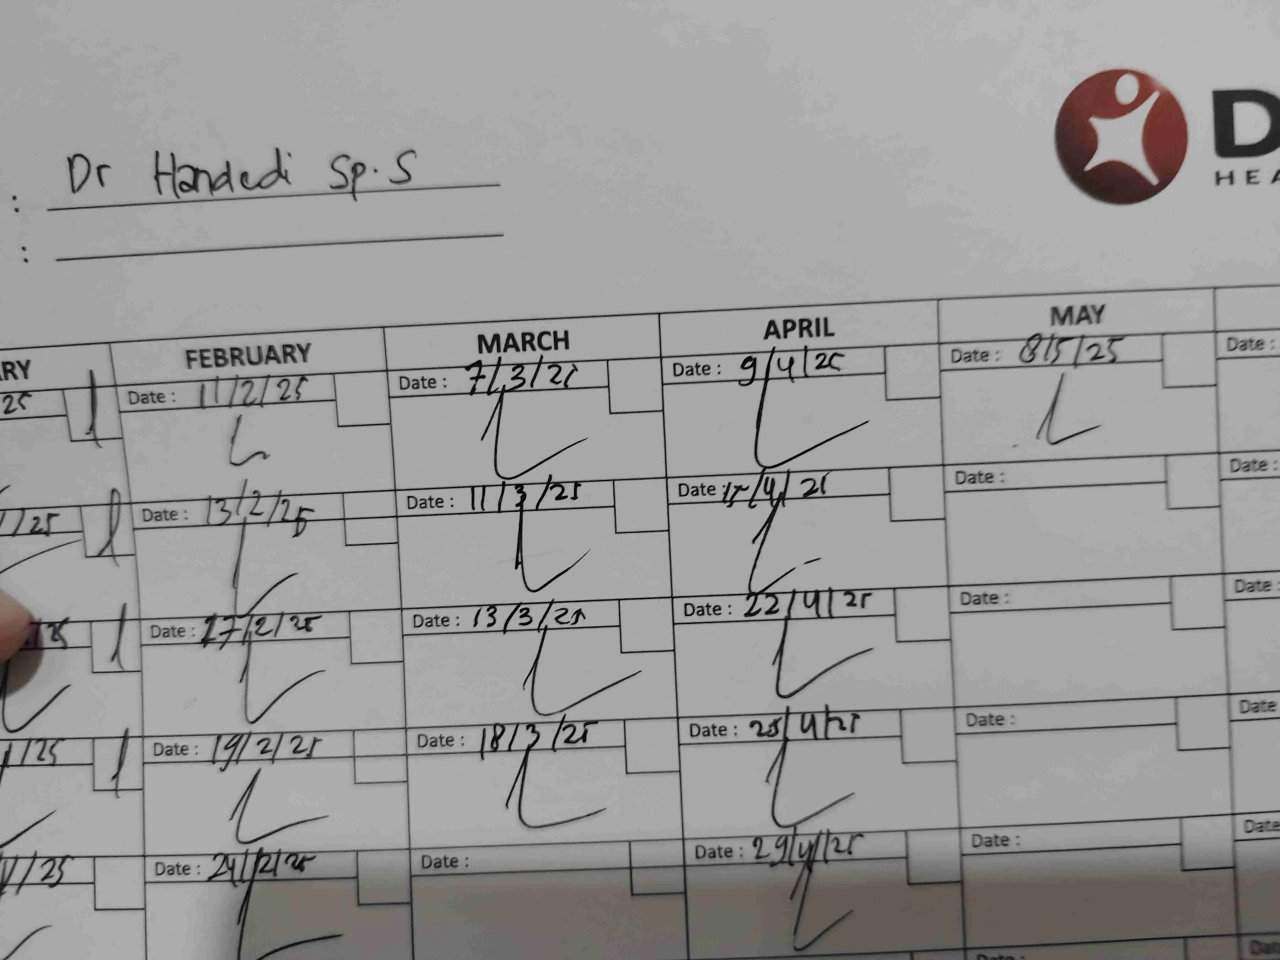 : Dr Handedi Sp.S
:
D
HEA
RY FEBRUARY MARCH APRIL MAY
25 Date : 11/2/25 Date : 7/3/25 Date : 9/4/25 Date : 8/5/25 Date :
/25 Date : 13/2/25 Date : 11/3/25 Date : /4/25 Date : Date :
Date : 17/2/25 Date : 13/3/25 Date : 22/4/25 Date : Date :
/25 Date : 19/2/25 Date : 18/3/25 Date : 25/4/25 Date : Date
/25 Date : 24/2/25 Date : Date : 29/4/25 Date : Date
Date : Dat